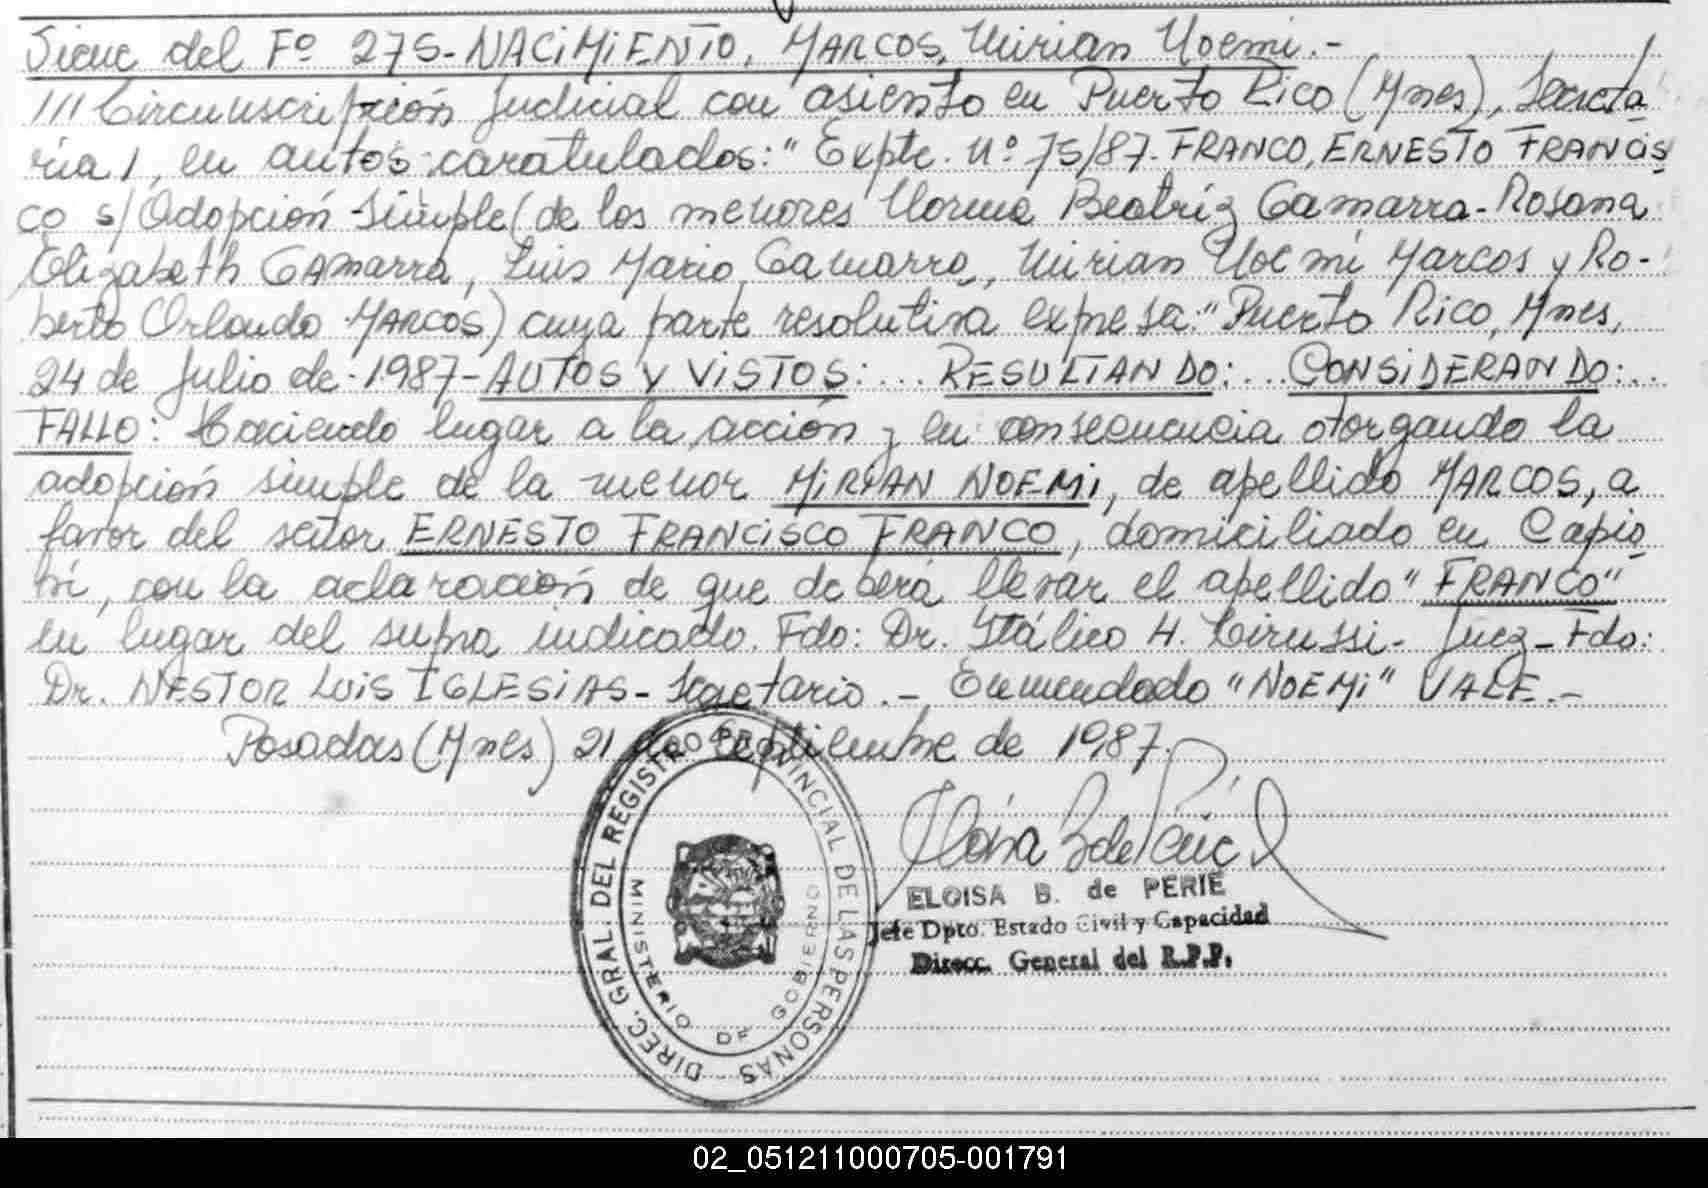 Sigue del Fº 275-NACIMIENTO, MARCOS, Mirian Noemi.-
/// Circunscripción Judicial con asiento en Puerto Rico (Mnes), Secreta
ria 1, en autos caratulados: "Expte. Nº 75/87- FRANCO, ERNESTO FRANCIS
CO s/ Adopción Simple (de los menores Norma Beatriz Gamarra- Rosana
Elizabeth GAmarra, Luis Mario Gamarra, Mirian Noemi Marcos y Ro-
berto Orlando MARCOS) cuya parte resolutiva expresa: "Puerto Rico, Mnes,
24 de Julio de 1987- AUTOS Y VISTOS: ... RESULTANDO: ... CONSIDERANDO: ..
FALLO: Haciendo lugar a la acción y en consecuencia otorgando la
adopción simple de la menor MIRIAN NOEMI, de apellido MARCOS, a
favor del señor ERNESTO FRANCISCO FRANCO, domiciliado en Capio
ví, con la aclaración de que deberá llevar el apellido "FRANCO"
en lugar del supra indicado. Fdo: Dr. Itálico H. Cirussi- Juez- Fdo:
Dr. NESTOR LUIS IGLESIAS- Secretario.- Enmendado "NOEMI" VALE.-
Posadas (Mnes) 21 de Septiembre de 1987.
DIREC. GRAL. DEL REGISTRO PROVINCIAL DE LAS PERSONAS -
MINISTERIO DE GOBIERNO
ELOISA B. de PERIE
Jefe Dpto. Estado Civil y Capacidad
Direcc. General del R.P.P.
02_051211000705-001791